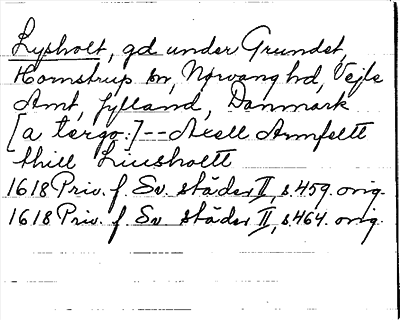 Lysholt, gd under Grundet,
Hornstrup sn, Nørvang hd, Vejle
Amt, Jylland, Danmark
[a tergo:]--Axell Arnfeltt
thill Liusholtt
1618 Priv. f. Sv. städer II, s. 459. orig.
1618 Priv. f. Sv städer II, s. 464. orig.